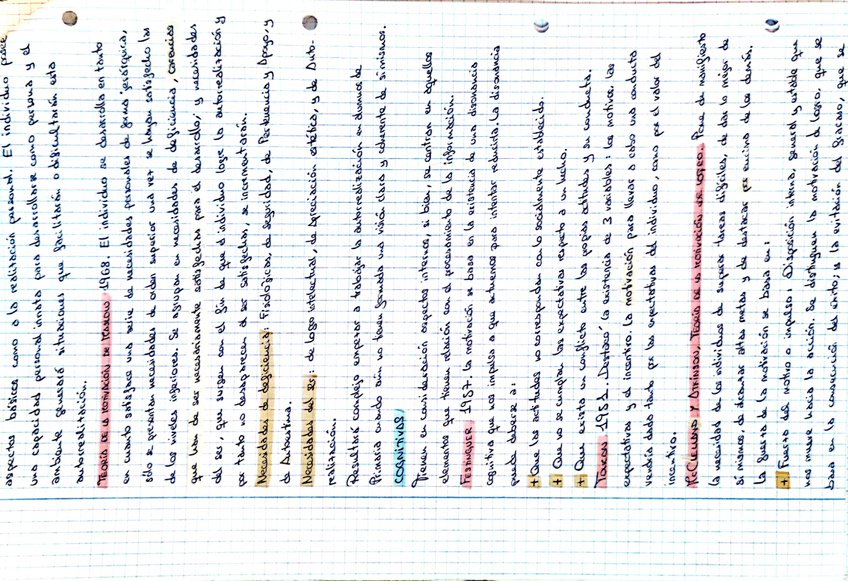 aspectos básicos como a la realización personal. El individuo posee
una capacidad personal innata para desarrollarse como persona y el
ambiente generará situaciones que facilitarán o dificultarán esta
autorrealización.
TEORÍA DE LA MOTIVACIÓN DE MASLOW 1968. El individuo se desarrolla en tanto
en cuanto satisface una serie de necesidades personales de forma jerárquica,
sólo se presentan necesidades de orden superior una vez se hayan satisfecho las
de los niveles inferiores. Se agrupan en necesidades de deficiencia, carencias
que han de ser necesariamente satisfechas para el desarrollo; y necesidades
del ser, que surgen con el fin de que el individuo logre la autorrealización y
por tanto no desaparecen al ser satisfechas, se incrementarán.
Necesidades de deficiencia: Fisiológicas, de Seguridad, de Pertenencia y Apoyo, y
de Autoestima.
Necesidades del ser: de logro intelectual, de Apreciación estética, y de Auto-
rrealización.
Resultará complejo empezar a trabajar la autorrealización en alumnos de
Primaria cuando aún no tienen formada una visión clara y coherente de sí mismos.
COGNITIVAS
Tienen en consideración aspectos internos, si bien, se centran en aquellos
elementos que tienen relación con el procesamiento de la información.
FESTINGUER, 1957. La motivación se basa en la existencia de una disonancia
cognitiva que nos impulsa a que actuemos para intentar reducirla. La disonancia
puede deberse a:
+ Que las actitudes no correspondan con lo socialmente establecido.
+ Que no se cumplan las expectativas respecto a un hecho.
+ Que exista un conflicto entre las propias actitudes y su conducta.
TOLMAN 1951. Destacó la existencia de 3 variables: los motivos, las
expectativas y el incentivo. La motivación para llevar a cabo una conducta
vendría dada tanto por las expectativas del individuo, como por el valor del
incentivo.
McCLELLAND Y ATKINSON, TEORÍA DE LA MOTIVACIÓN DE LOGRO. Pone de manifiesto
la necesidad de los individuos de superar tareas difíciles, de dar lo mejor de
sí mismos, de alcanzar altas metas y de destacar por encima de los demás.
La fuerza de la motivación se basa en:
+ Fuerza del motivo o impulso: Disposición interna, general y estable que
nos mueve hacia la acción. Se distinguen la motivación de logro, que se
basa en la consecución del éxito; y la evitación del fracaso, que se